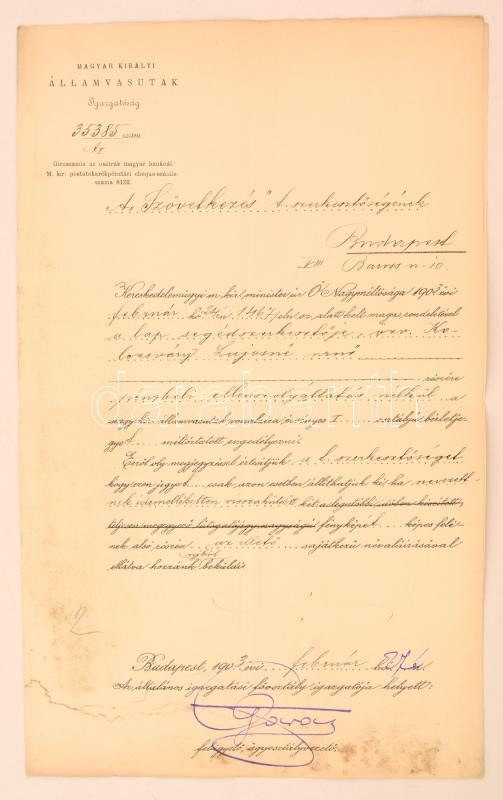 MAGYAR KIRÁLYI
ÁLLAMVASUTAK
Igazgatóság
35385 szám.
Az
Girosszámla az osztrák magyar banknál.
M. kir. postatakarékpénztári cheque-számla-
száma 8122.
A „Szövetkezés" t. szerkesztőségének
Budapest
VIII Baross u. 10.
Kereskedelemügyi m. kir. minister úr Ő Nagyméltósága 1903 évi
február hó 24én 1467 eln. sz. alatt kelt magas rendeletével
a lap segédszerkesztője, özv. Ko-
lozsváry Lajosné urnő
részére
pénzbeli ellenszolgáltatás nélkül a
magy. kir. államvasutak vonalaira érvényes I. osztályú bérletje-
gyet méltóztatott engedélyezni.
Erről oly megjegyzéssel értesítjük a t. szerkesztőséget
hogy ezen jegyet csak azon esetben állíthatjuk ki, ha nevezett-
nek idemellékelten visszaküldött két a legutóbbi időben készített
teljesen megegyező látogatójegy nagyságú fényképet képes felé-
nek alsó részén az illető sajátkezű névaláírásával
ellátva hozzánk újból beküldi.
2
Budapest, 1903 évi február hó 27én
Az általános igazgatási főosztály igazgatója helyett:
felügyelő, ügyosztályvezető.
darabanth